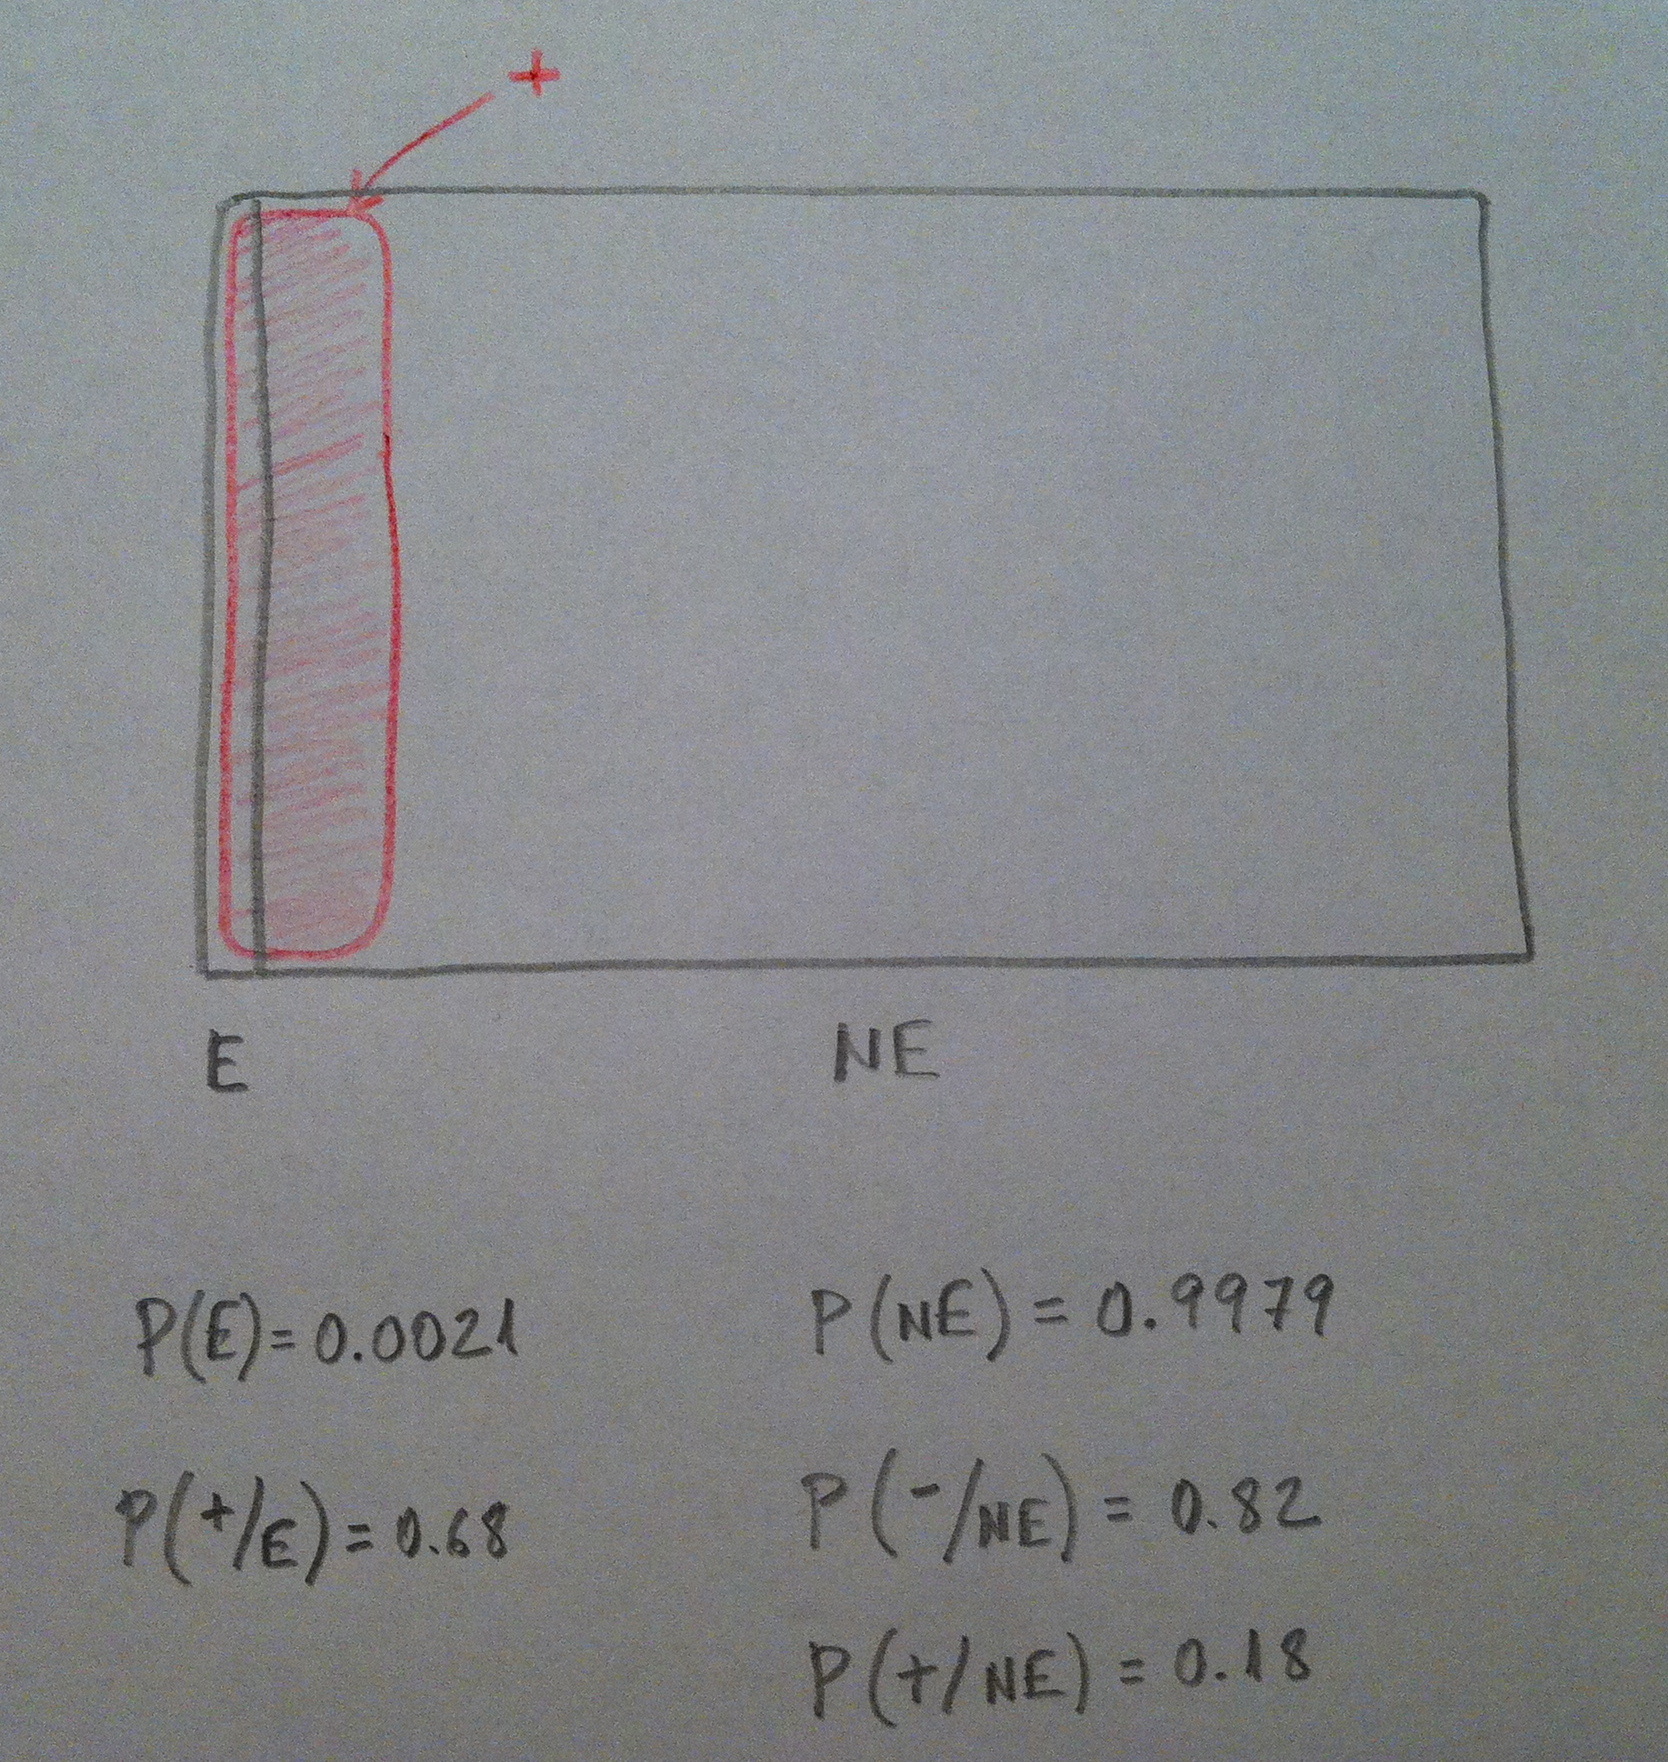 +
E NE
P(E)=0.0021 P(NE)=0.9979
P(+/E)=0.68 P(-/NE)=0.82
P(+/NE)=0.18